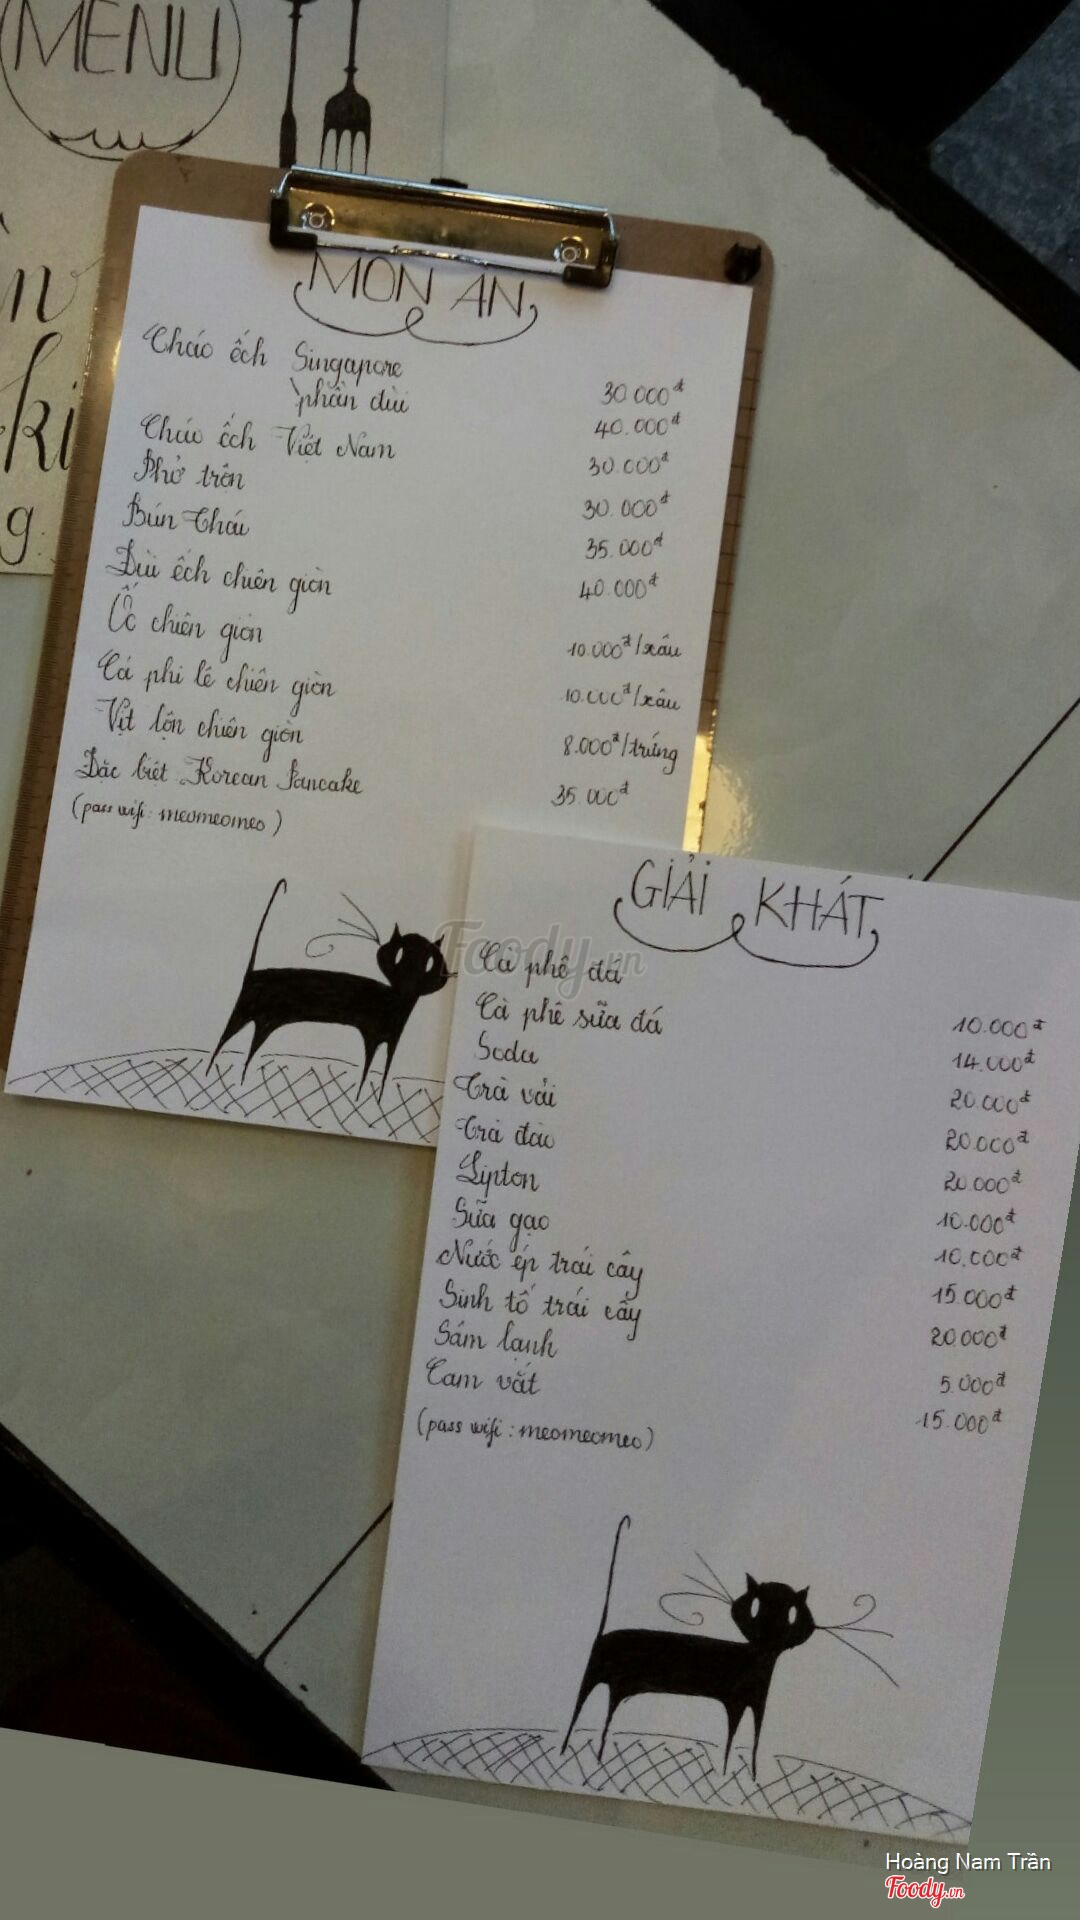 MENU
MÓN ĂN
Cháo ếch Singapore 30.000đ
phần đùi 40.000đ
Cháo ếch Việt Nam 30.000đ
Phở trộn 30.000đ
Bún Thái 35.000đ
Đùi ếch chiên giòn 40.000đ
Ốc chiên giòn 10.000đ/xâu
Cá phi lê chiên giòn 10.000đ/xâu
Vịt lộn chiên giòn 8.000đ/trứng
Đặc biệt Korean Pancake 35.000đ
(pass wifi: meomeomeo)
GIẢI KHÁT
Cà phê đá 10.000đ
Cà phê sữa đá 14.000đ
Soda 20.000đ
Trà vải 20.000đ
Trà đào 20.000đ
Lipton 10.000đ
Sữa gạo 10.000đ
Nước ép trái cây 15.000đ
Sinh tố trái cây 20.000đ
Sâm lạnh 5.000đ
Cam vắt 15.000đ
(pass wifi: meomeomeo)
Foody.vn
Hoàng Nam Trần
Foody.vn